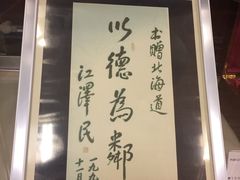 书赠北海道
以德為鄰
江澤民
一九九
十一月